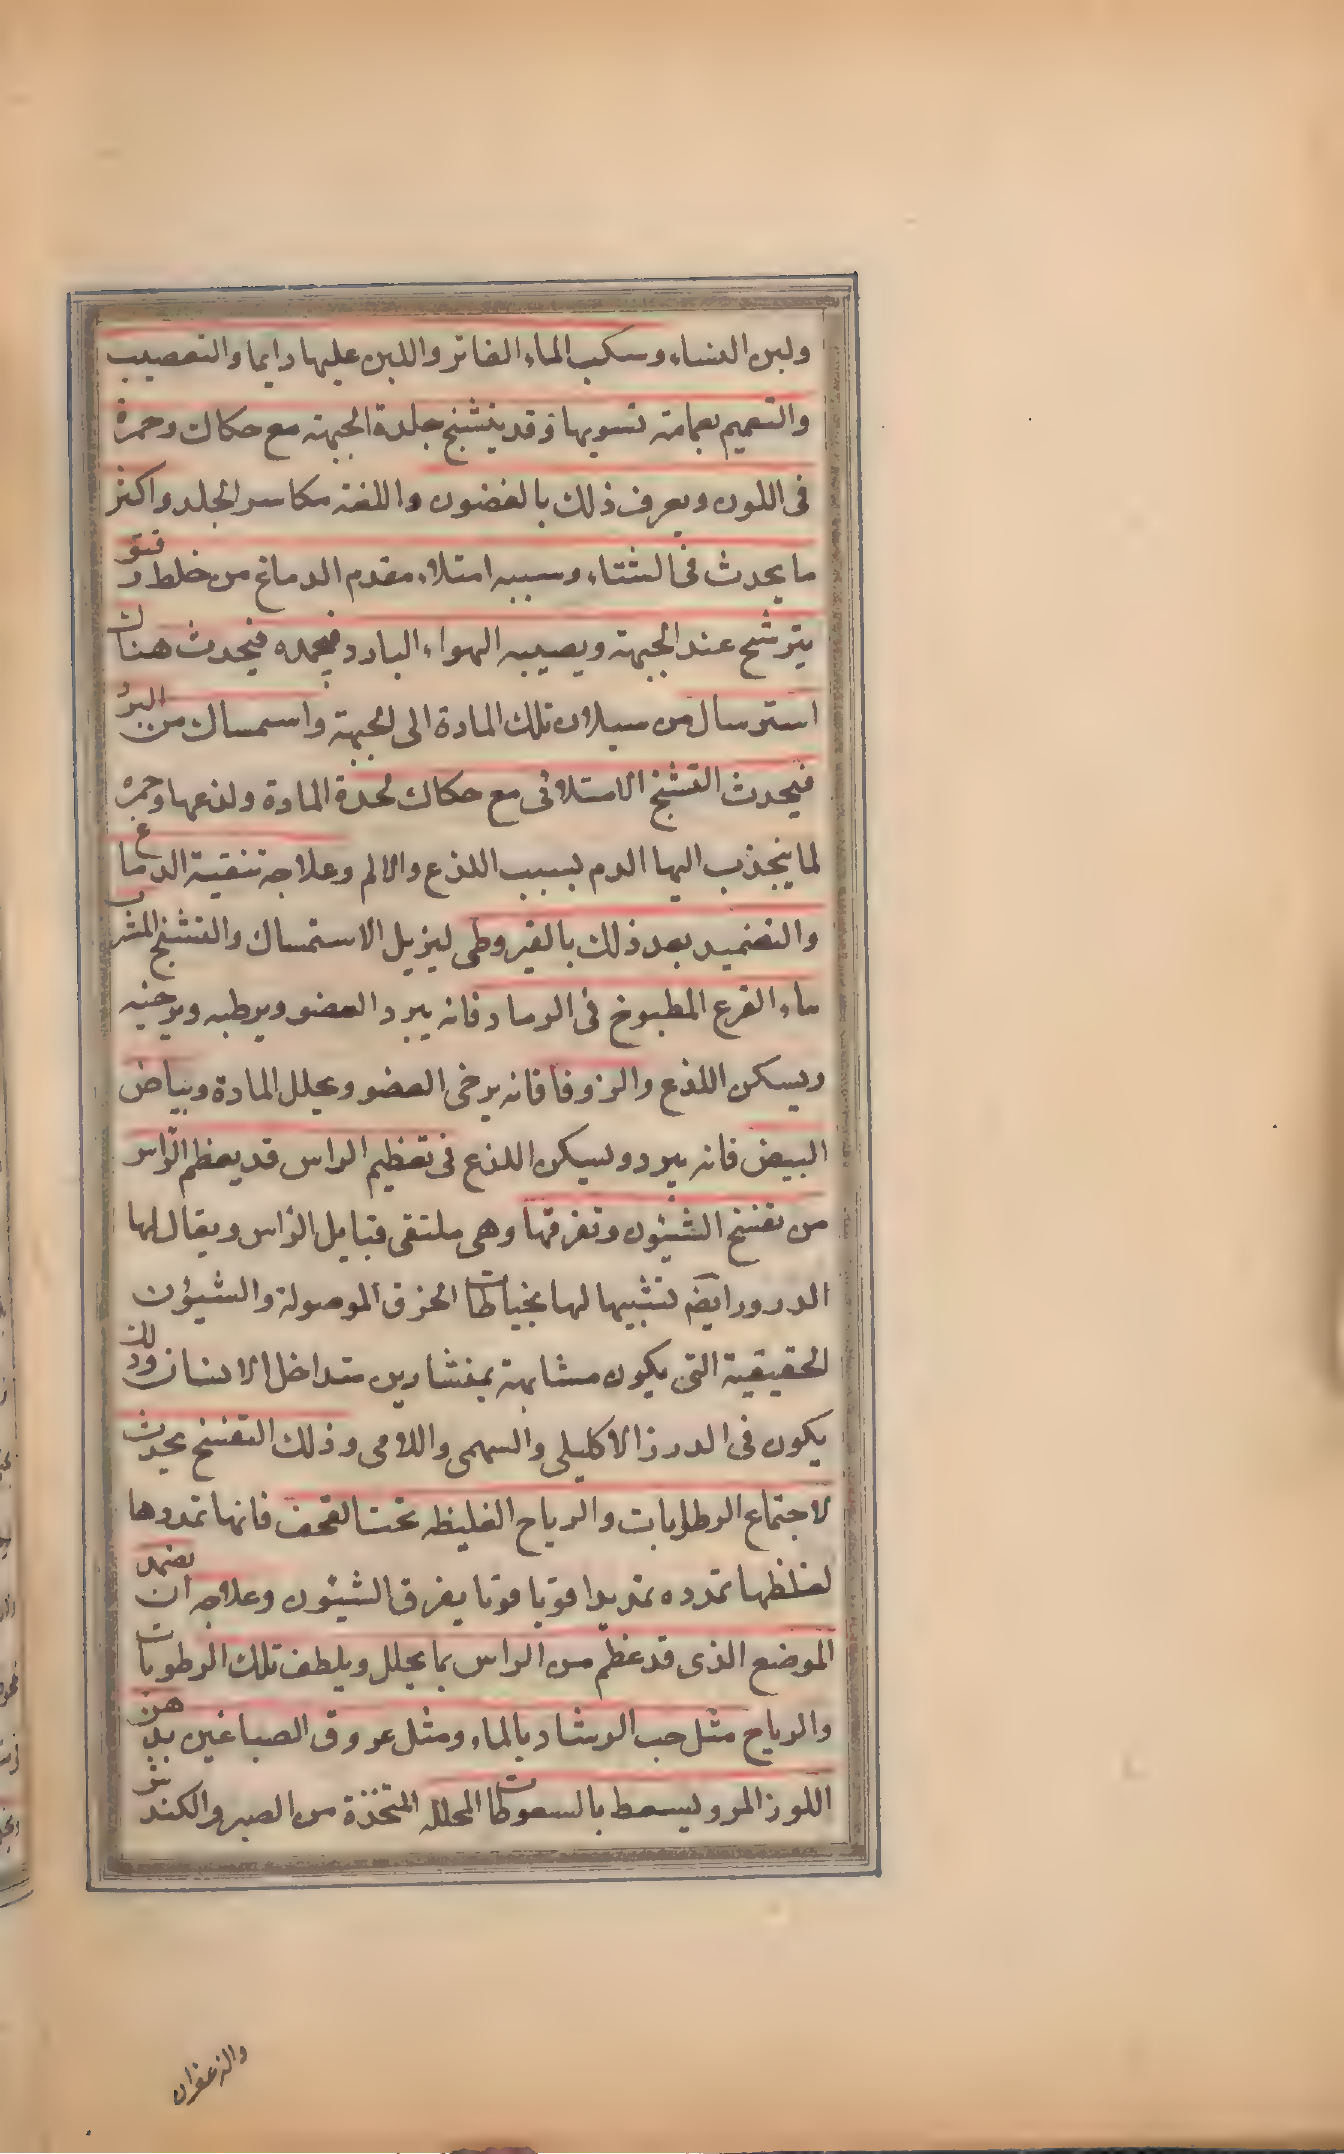 ولبن النساء وسكب الماء الفاتر واللبن عليها دايما والتعصيب
والتعميم بعمامة تسويها وقد يتشنج جلدة الجبهة مع حكاك وحمرة
فى اللون ويعرف ذلك بالغضون واللغة مكاسر الجلد واكثر
ما يحدث فى الشتاء وسببه امتلاء مقدم الدماغ من خلط رقيق
يترشح عند الجبهة ويصيبه الهواء البارد فيجمده فيحدث هناك
استرسال من سيلان تلك المادة الى الجبهة واسمساك من البرد
فيحدث التشنج الامتلائى مع حكاك لحدة المادة ولذعها وحمرة
لما ينجذب اليها الدم بسبب اللذع والالم وعلاجه تنقية الدماغ
والتضميد بعد ذلك بالقيروطى ليزيل الاستمساك والتشنج المشرب
ماء القرع المطبوخ فى الرماد فانه يبرد العضو ويرطبه ويرخيه
ويسكن اللذع والزوفا فانه يرخى العضو ويحلل المادة وبياض
البيض فانه يبرد ويسكن اللذع فى تعظيم الراس قد يعظم الراس
من تفتح الشئون وتفرقها وهى ملتقى قبايل الراس ويقال لها
الدرور ايضا تشبيها لها بخياطات الخرق الموصولة والشيؤن
الحقيقية التى يكون مشابهة بمنشارين متداخل الاسنان وذلك
يكون فى الدرز الاكليلى والسهمى واللامى وذلك التفتح يحدث
لاجتماع الرطوبات والرياح الغليظه تحت القحف فانها تمددها
لغلظها تمدده تمديدا قويا قويا يفرق الشيئون وعلاجه ان يضمد
الموضع الذى قد عظم من الراس بما يحلل ويلطف تلك الرطوبات
والرياح مثل حب الرشاد بالماء ومثل عروق الصباغين بدهن
اللوز المر ويسعط بالسعوطات المحلله المتخذة من الصبر والكندر
والزعفران